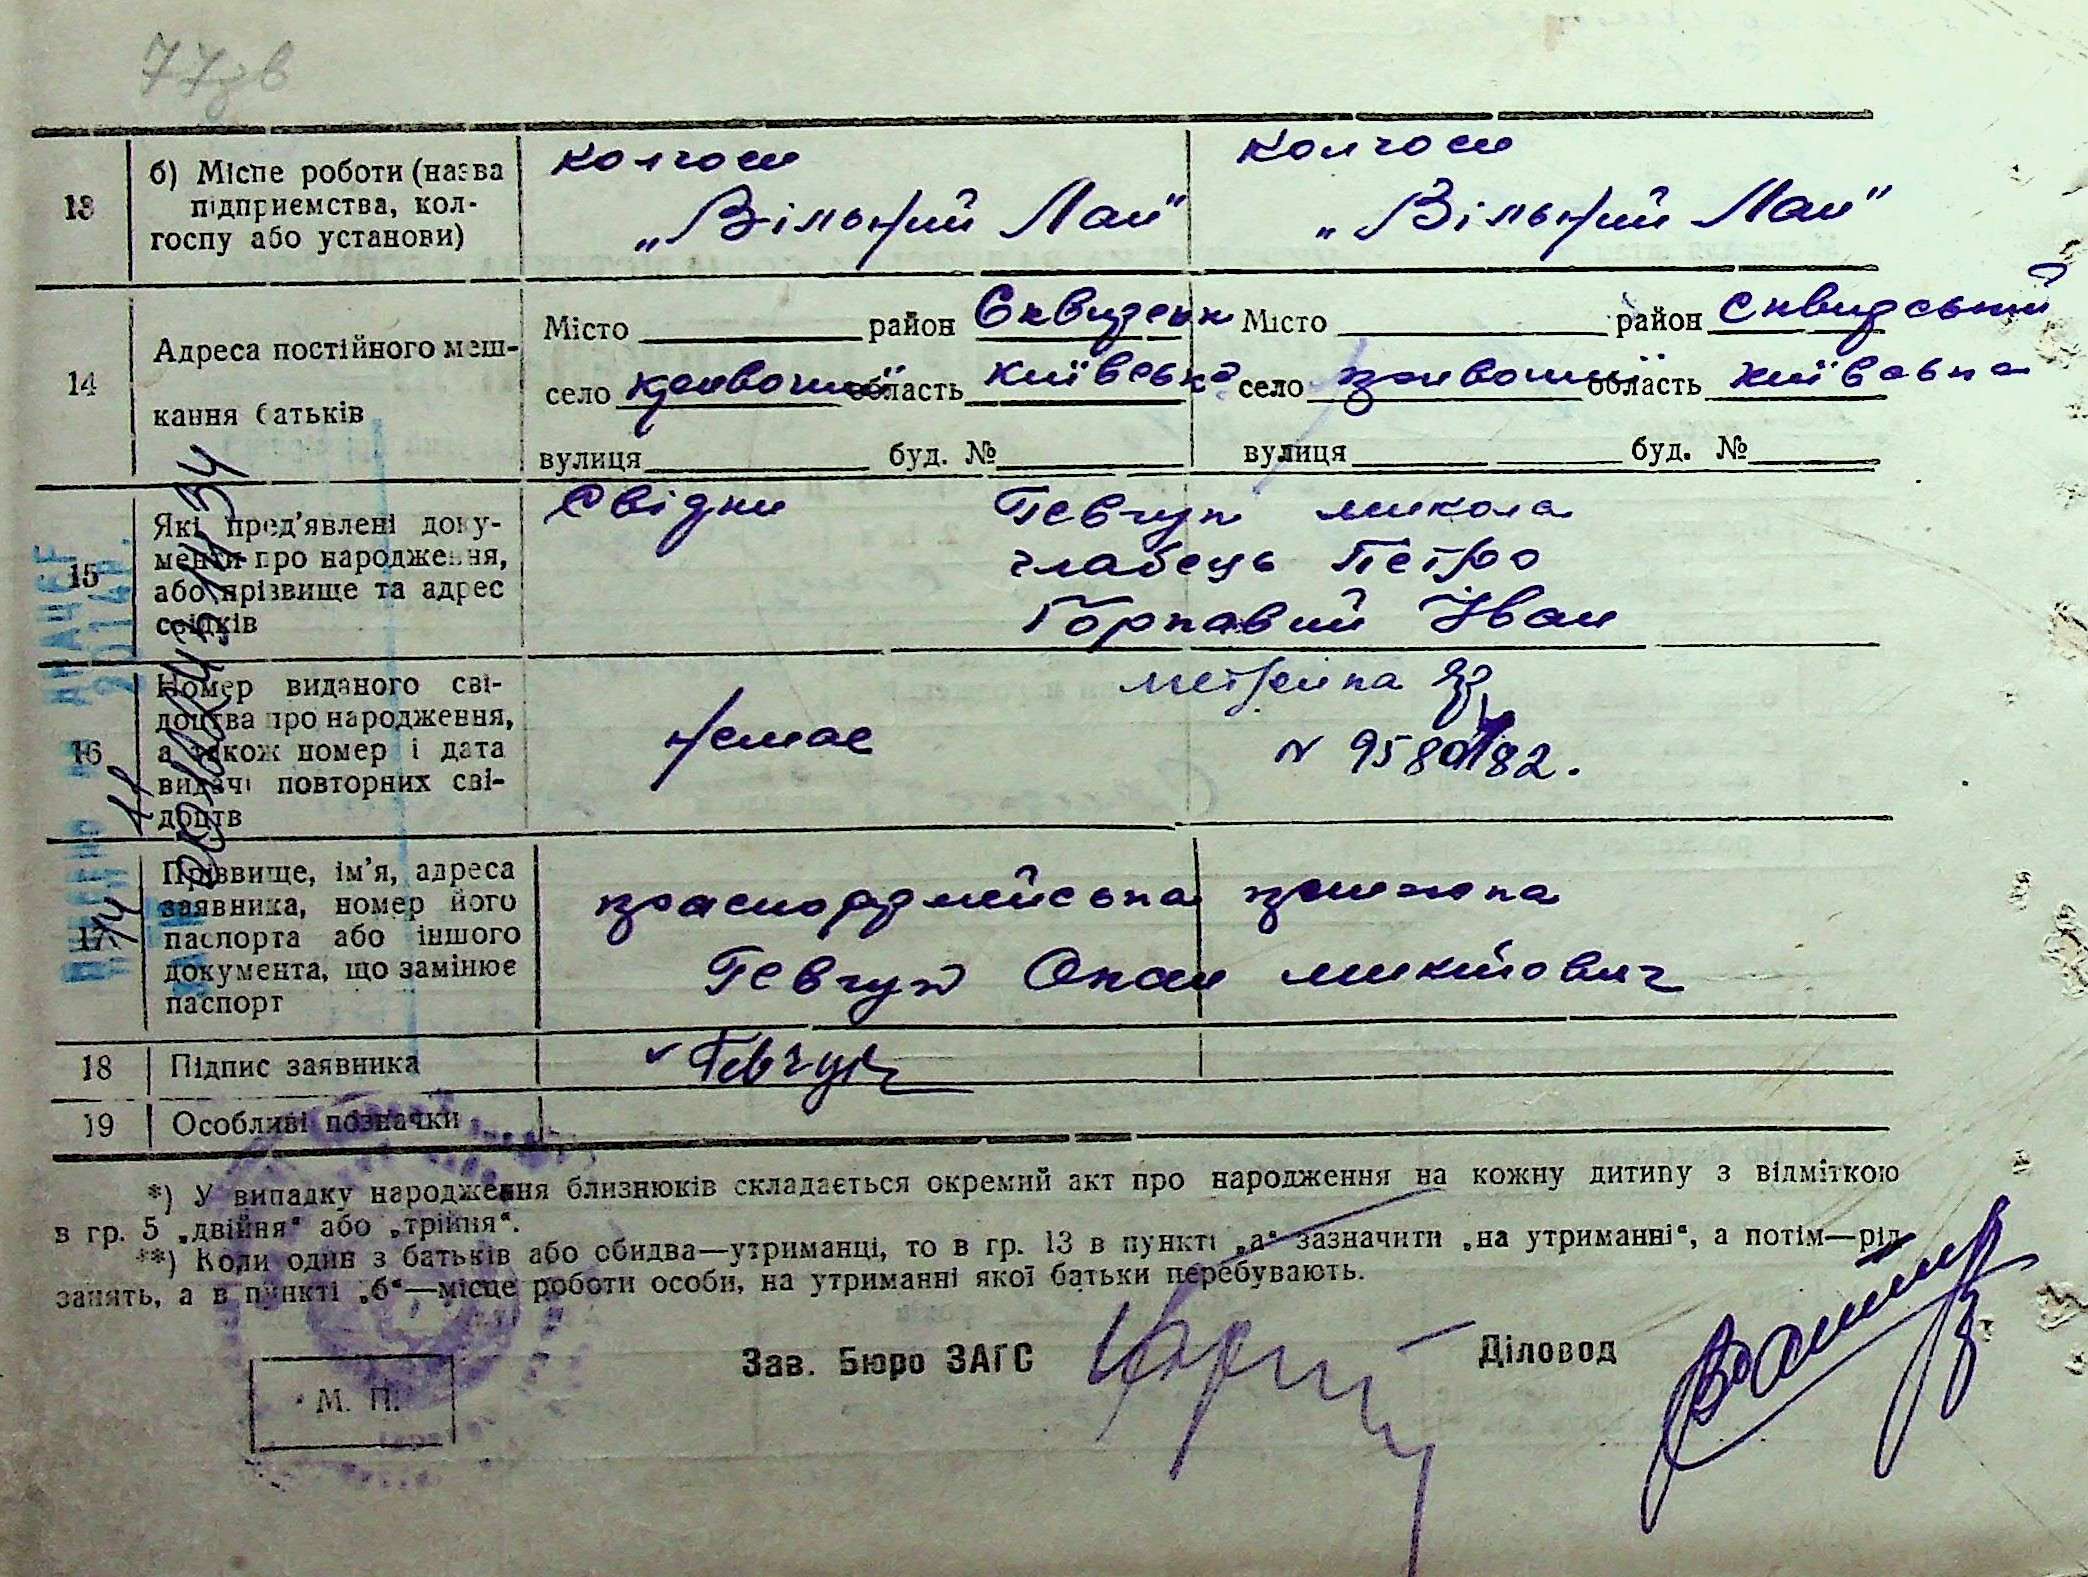 77зв
13 б) Місце роботи (назва підприємства, колгоспу або установи)
колгосп колгосп
„Вільний Лан" „Вільний Лан"
14 Адреса постійного мешкання батьків
Місто район Сквирськ Місто район Сквирський
село область київська село область київська
вулиця буд. № вулиця буд. №
15 Які пред'явлені документи про народження, або прізвище та адрес свідків
Свідки Гевчук микола
Петро
Іван
16 Номер виданого свідоцтва про народження, а також номер і дата видачі повторних свідоцтв
немає метрика
N
17 Прізвище, ім'я, адреса заявника, номер його паспорта або іншого документа, що замінює паспорт
красноармейська книжка
Гевчук Опан микитович
18 Підпис заявника Гевчук
19 Особливі позначки
*) У випадку народження близнюків складається окремий акт про народження на кожну дитину з відміткою
в гр. 5 „двійня" або „трійня".
**) Коли один з батьків або обидва—утриманці, то в гр. 13 в пункті „а" зазначити „на утриманні", а потім—рід
занять, а в пункті „б"—місце роботи особи, на утриманні якої батьки перебувають.
Зав. Бюро ЗАГС Діловод
М. П.